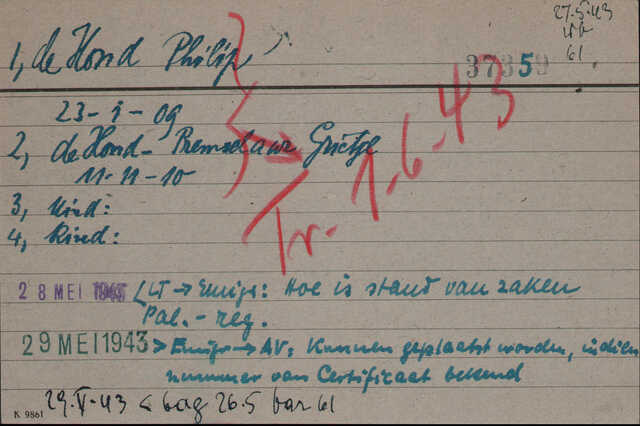 27.5.43
61.
1, de Hond Philip
37359
23-1-09
2, de Hond- Premselaar Grietje
11-11-10
Tr. 1.6.43
3, Kind:
4, Kind:
28 MEI 1943 LT → Emigr: Hoe is stand van zaken
Pal. - reg.
29 MEI 1943 > Emigr → AV: Kunnen geplaatst worden, indien
nummer van Certificaat bekend
29.V.43 < bag 26.5 bar 61
K 9861